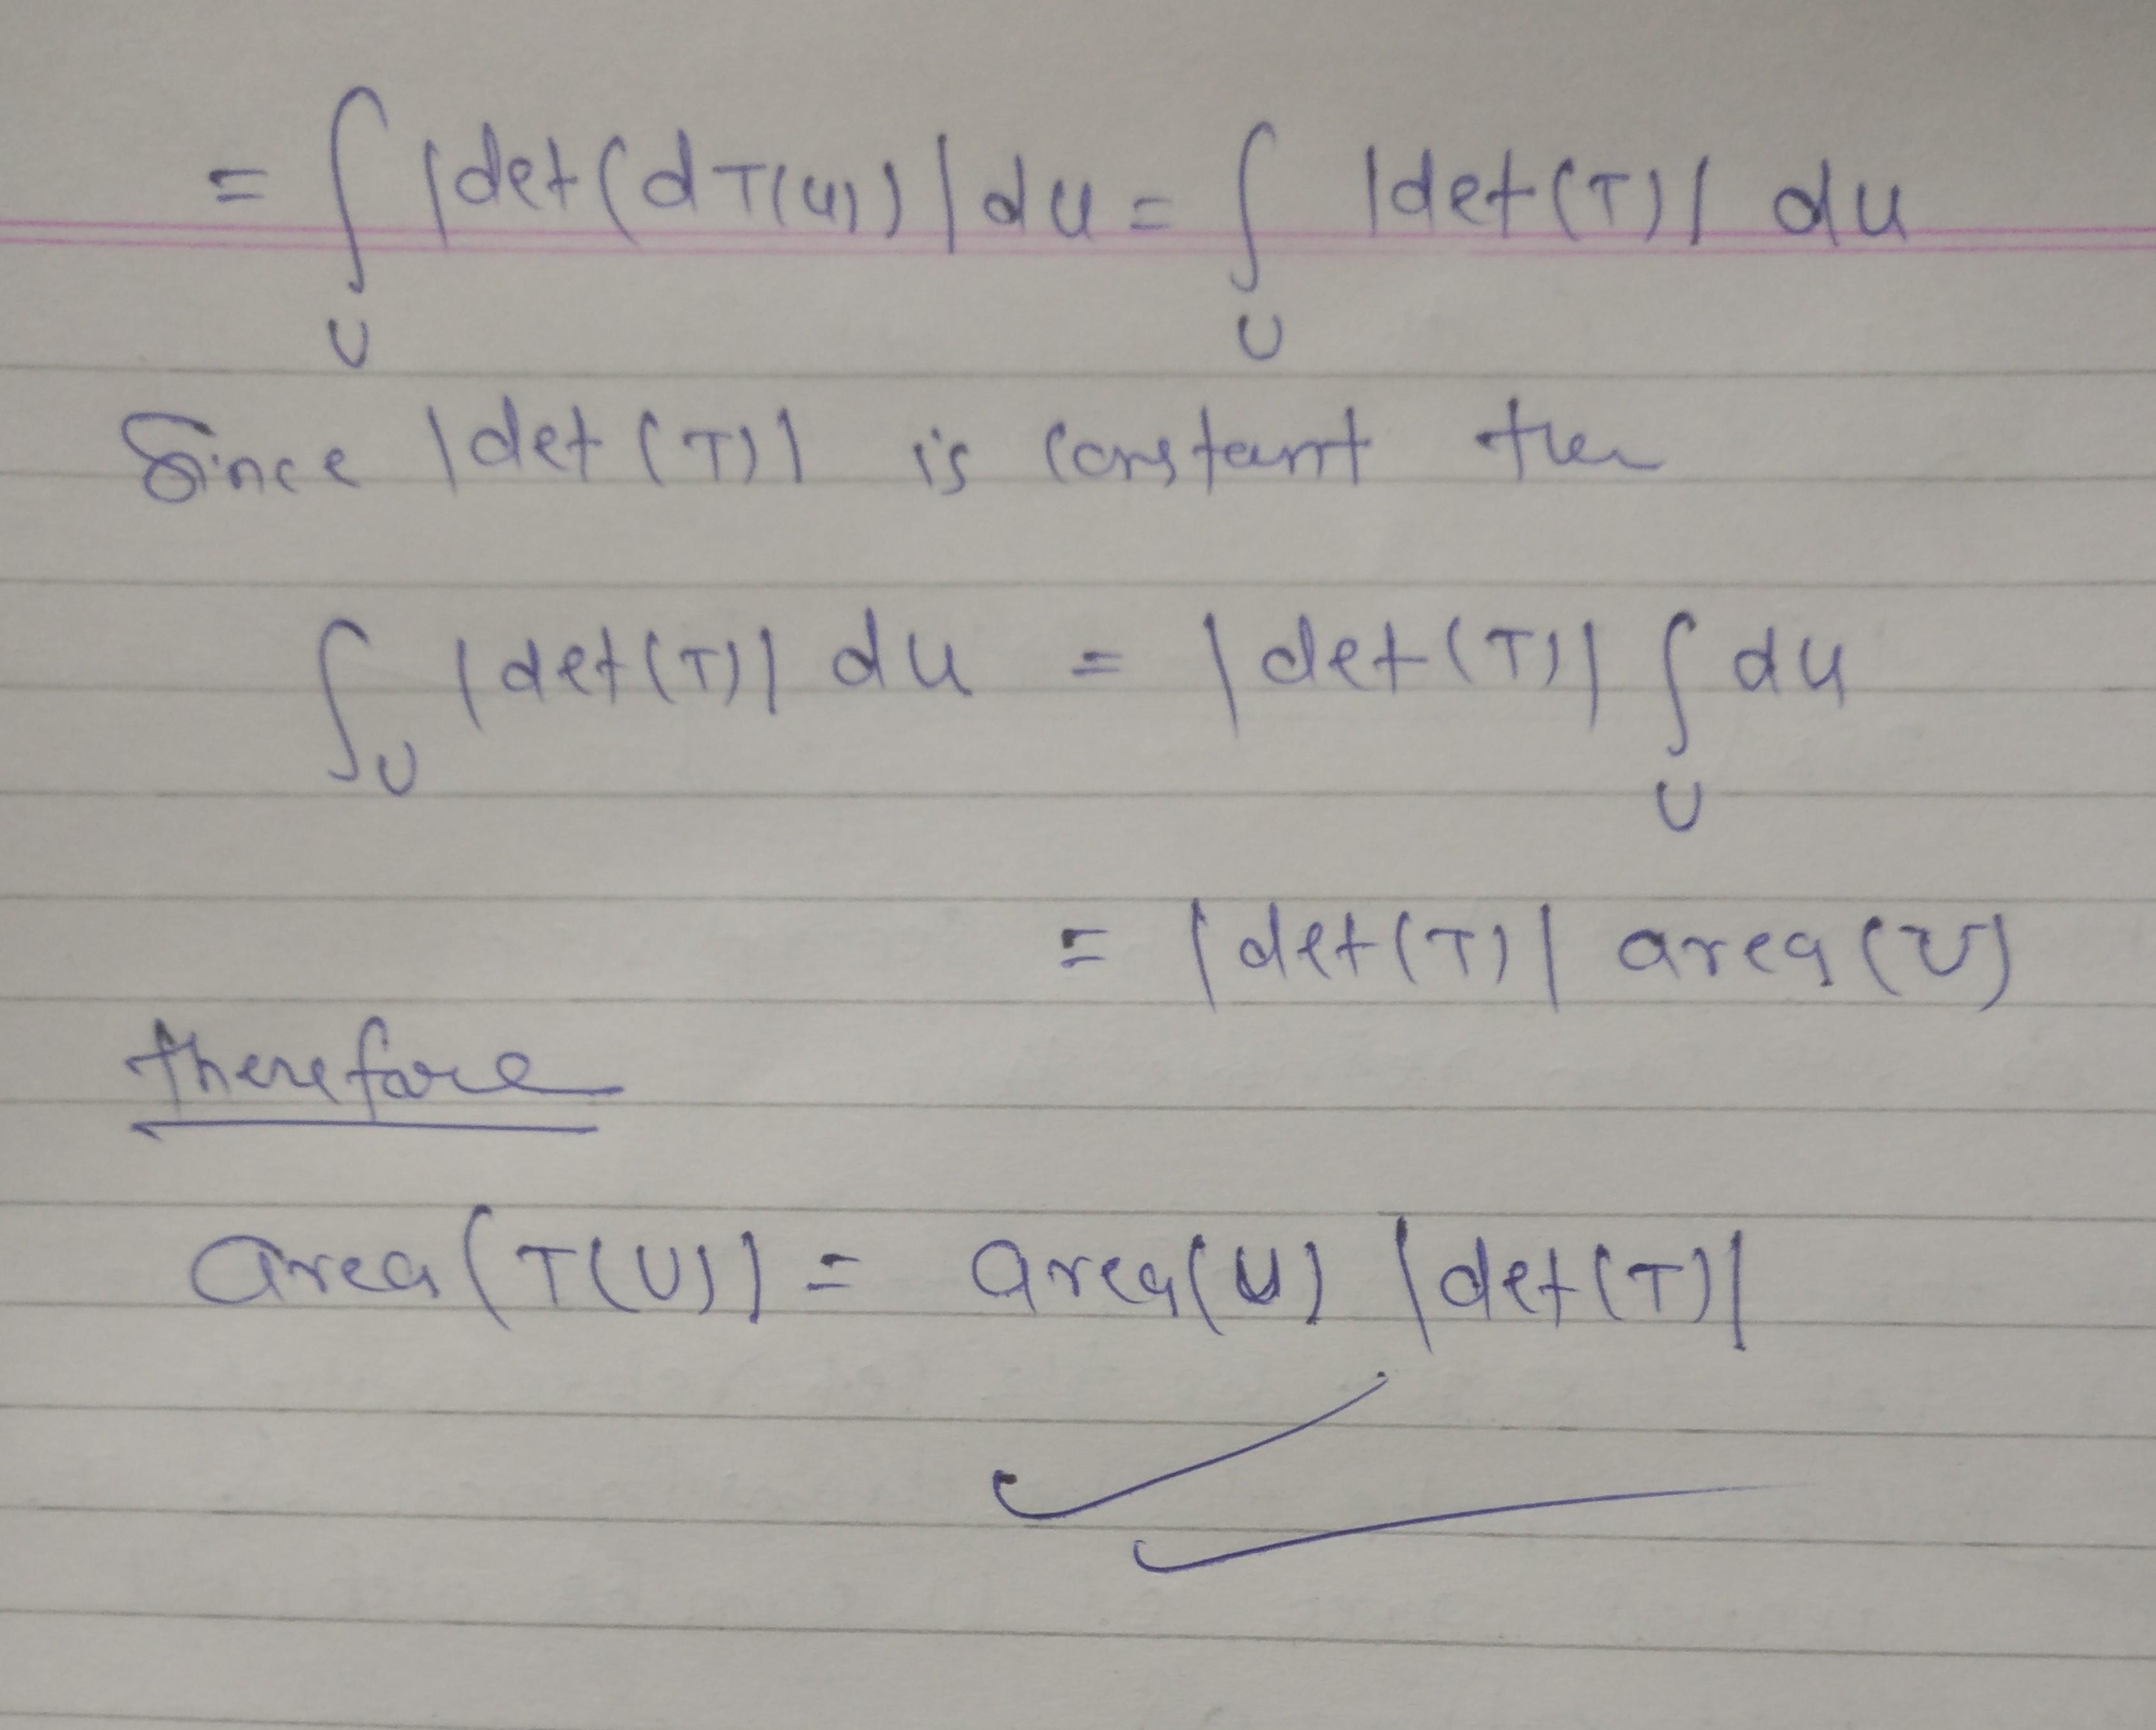 = ∫_U |det(dT(u))| du = ∫_U |det(T)| du
Since |det(T)| is constant then
∫_U |det(T)| du = |det(T)| ∫_U du
= |det(T)| area(U)
therefore
area(T(U)) = area(U) |det(T)|